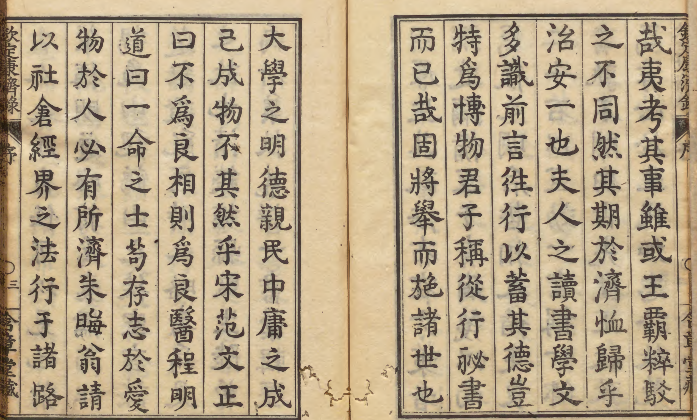 哉夷考其事雖或王霸粹駁
之不同然其期於濟恤歸乎
治安一也夫人之讀書學文
多識前言徃行以蓄其德豈
特爲愽物君子稱從行祕書
而已哉固將舉而施諸世也
大學之明德親民中庸之成
己成物不其然乎宋范文正
曰不爲良相則爲良醫程明
道曰一命之士苟存志於愛
物於人必有所濟朱晦翁請
以社倉經界之法行于諸路
欽定康濟錄 序 〇三 堂藏